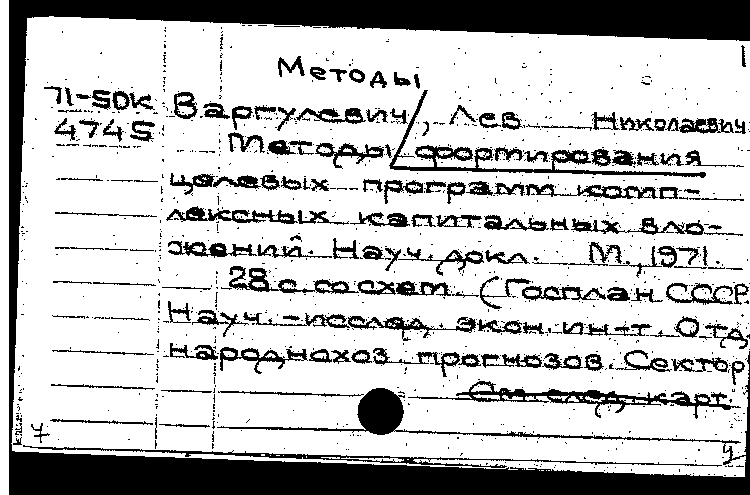 Методы
71-5DK Варгулевич, Лев Николаевич
4745 Методы формирования
целевых программ комп-
лексных капитальных вло-
жений. Науч. докл. М., 1971.
28 с. со схем. (Госплан СССР
Науч.-исслед. экон. ин-т. Отд.
народнохоз. прогнозов. Сектор
См. след. карт.
у у